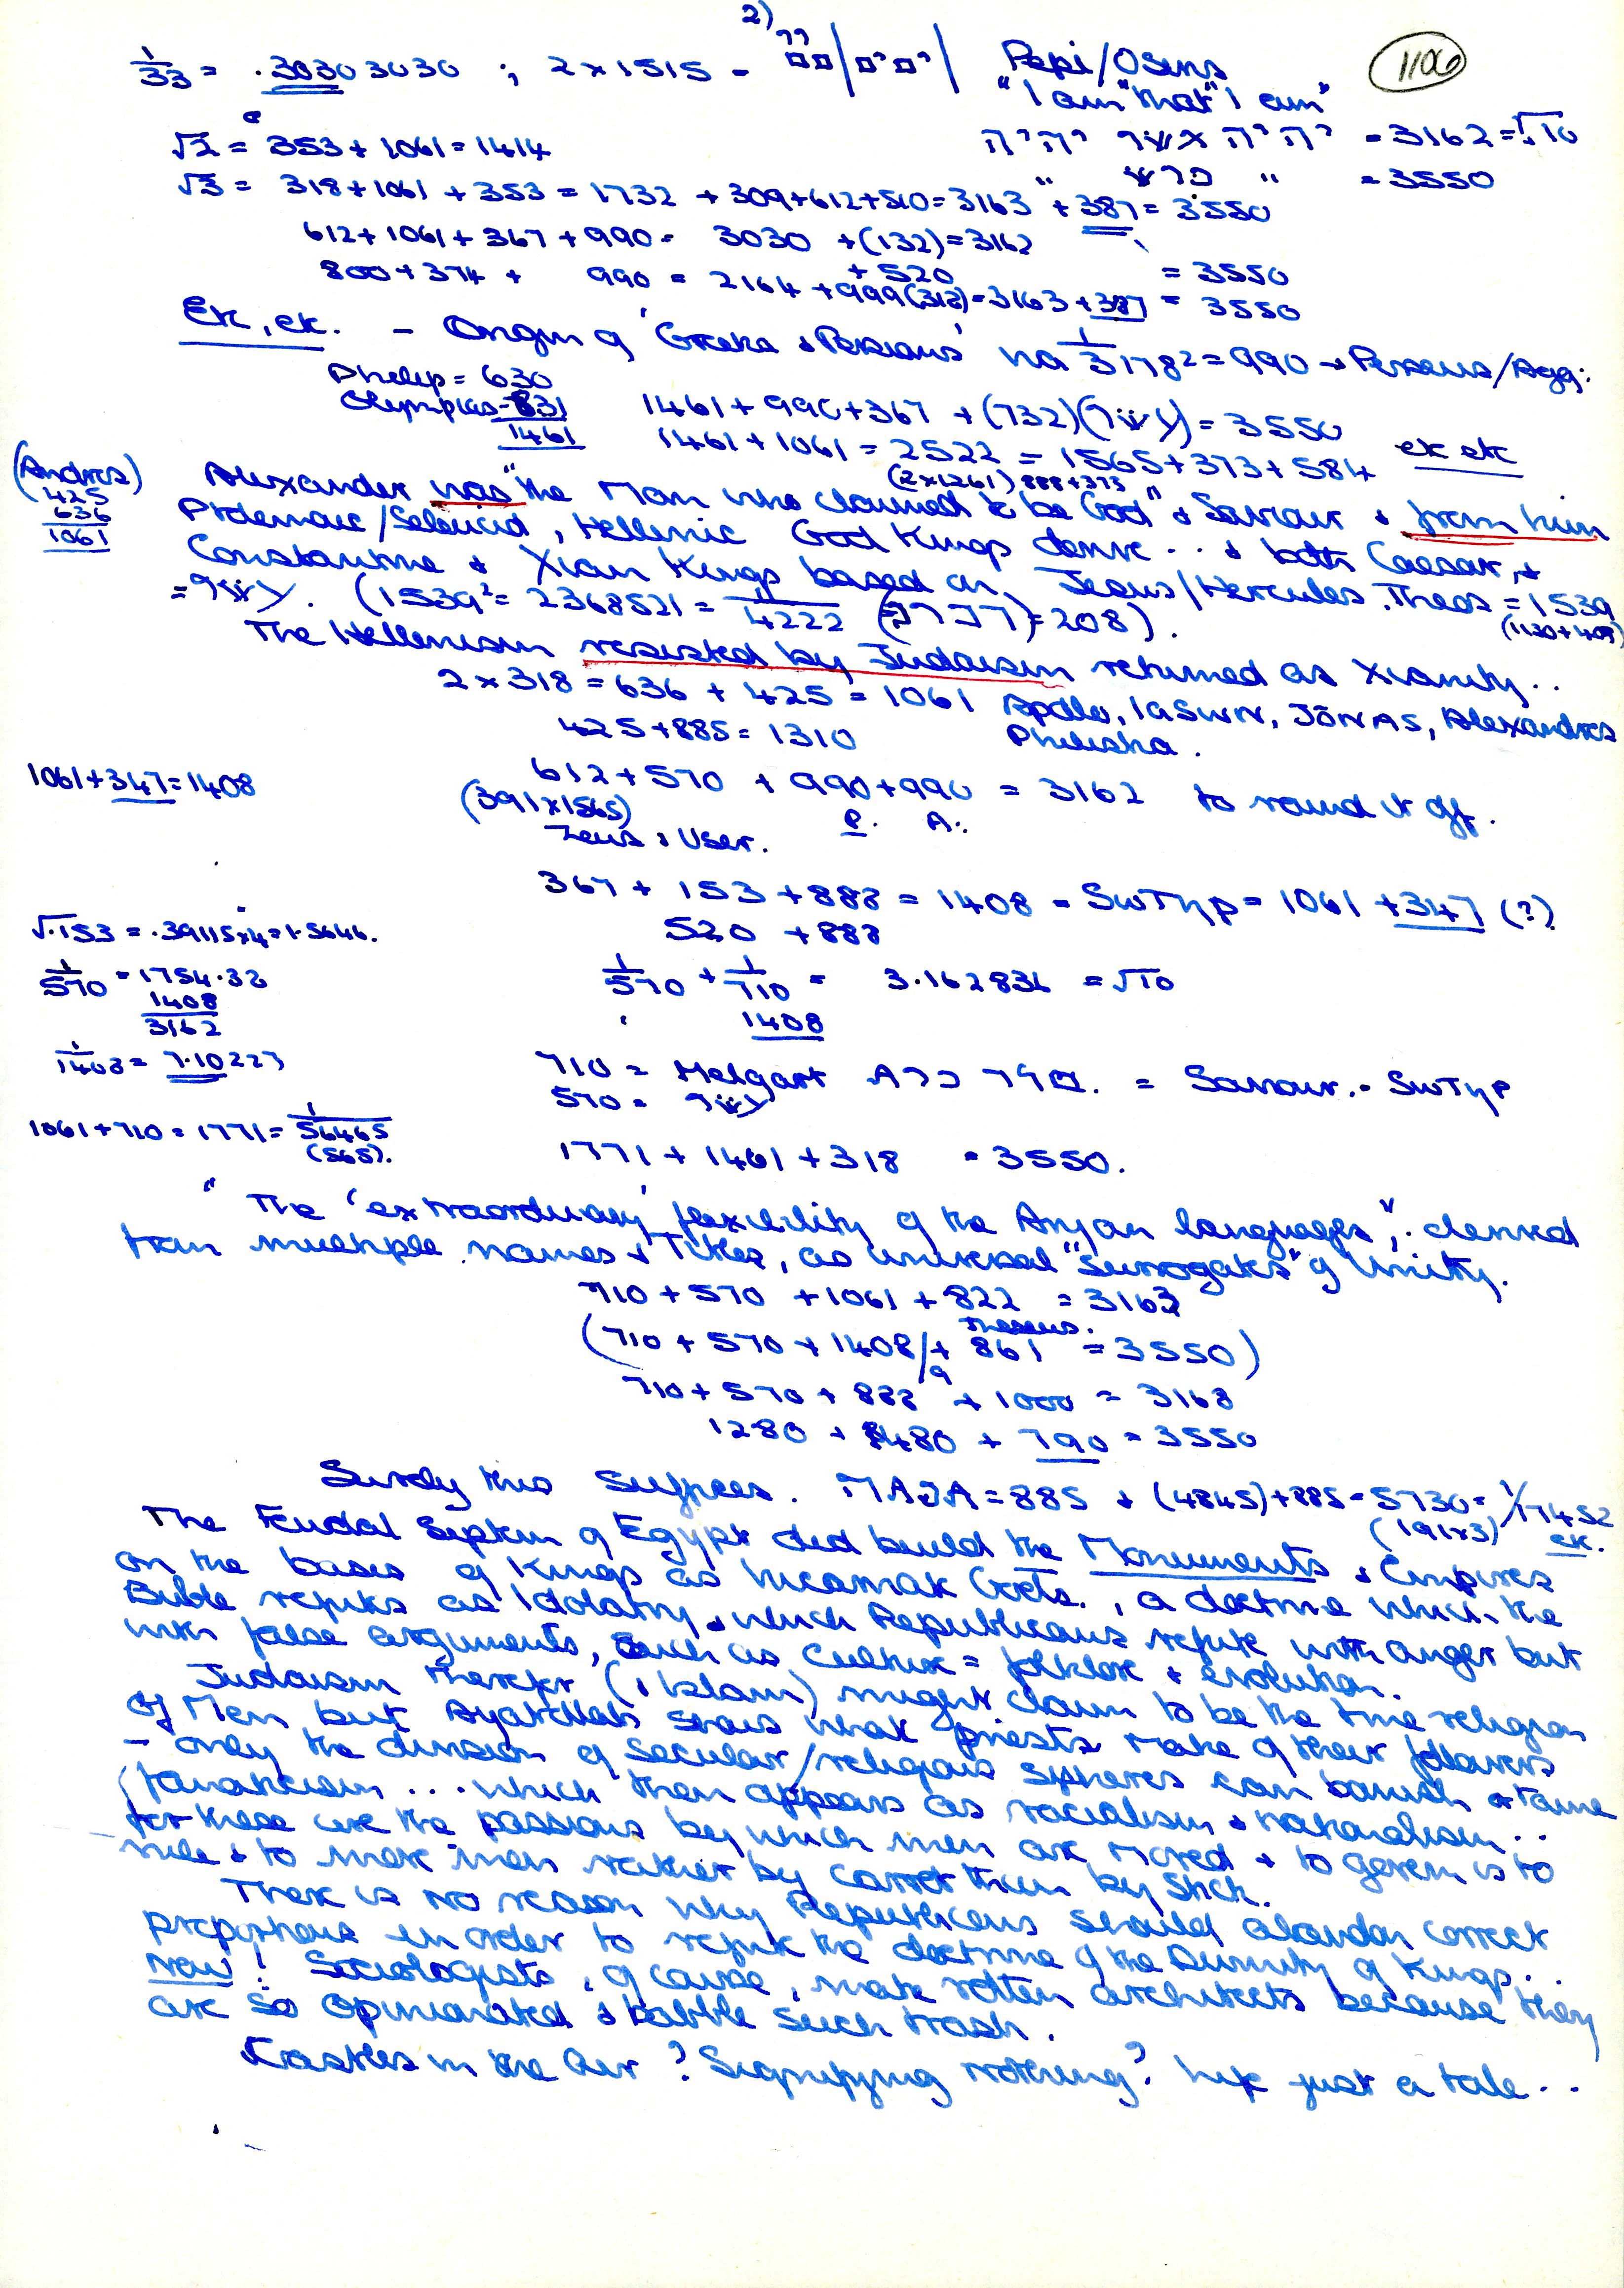 2)
1/33 = .30303030 ; 2 x 1515 = Pepi/Osiris
1106
"I am" "that" "I am"
√2 = 353 + 1061 = 1414
יהיה אשר יהיה = 3162 = √10
" " = 3550
√3 = 318 + 1061 + 353 = 1732 + 309 + 612 + 510 = 3163 + 387 = 3550
612 + 1061 + 367 + 990 = 3030 + (132) = 3162
+ 520 = 3550
800 + 374 + 990 = 2164 + 999 (318) = 3163 + 387 = 3550
Etc, etc. - Origin of 'Greeks & Persians' via 1/3178² = 990 → Perseus/Agg:
Philip = 630
Olympias = 831
1461
1461 + 990 + 367 + (732) = 3550
1461 + 1061 = 2522 = 1565 + 373 + 584 etc etc
(2x1261) 888+373
(Andres)
425
636
1061
Alexander was "the Man who claimed to be God" & Saviour & from him
Ptolemaic/Seleucid, Hellenic God Kings derive .. & both Caesar, &
Constantine & Xian Kings based on Jesus/Hercules. Theos = 1539
(1130+409)
(1539² = 2368521 = 1/4222 = 208).
The Hellenism resisted by Judaism returned as Xianity..
2 x 318 = 636 + 425 = 1061 Apollo, IaSwN, JōNAS, Alexandros
425 + 885 = 1310 Philisha.
1061 + 347 = 1408
612 + 570 + 990 + 990 = 3162 to round it off.
(391 x 1565) P. A.
Zeus & User.
367 + 153 + 888 = 1408 = SwTηρ = 1061 + 347 (?)
520 + 888
√.153 = .39115x4 = 1.5646.
1/570 = 1754.38
1408
3162
1/570 + 1/710 = 3.162836 = √10
1408
1/1408 = 7.10227
710 = Melqart = Saviour. - SwTηρ
570 =
1061 + 710 = 1771 = 1/56465
(565).
1771 + 1461 + 318 = 3550.
"The 'extraordinary' flexibility of the Aryan languages", derived
from multiple names & Titles, as universal "surrogates" of Unity.
710 + 570 + 1061 + 822 = 3163
Theseus.
(710 + 570 + 1408/+ 861 = 3550)
9
710 + 570 + 888 + 1000 = 3168
1280 + 1480 + 790 = 3550
Surely this suffices. = 885 & (4845) + 885 = 5730 = 1/17452
(191x3) etc.
The Feudal System of Egypt did build the Monuments & Empires
on the basis of Kings as Incarnate Gods, a doctrine which the
Bible refutes as Idolatry, & which Republicans refute with anger but
with false arguments, such as Culture = folklore & evolution.
Judaism therefor (& Islam) might claim to be the true religion
of Men but Ayatollahs shows what priests make of their followers
- only the division of Secular/religious spheres can banish or tame
fanaticism ... which then appears as racialism & nationalism..
for these are the passions by which men are moved & to govern is to
rule & to move men rather by carrot than by stick.
There is no reason why Republicans should abandon correct
propositions in order to refute the doctrine of the Divinity of Kings..
now! Sociologists, of course, make rotten architects because they
are so opinionated & babble such trash.
Castles in the Air? Signifying nothing? Life just a tale..